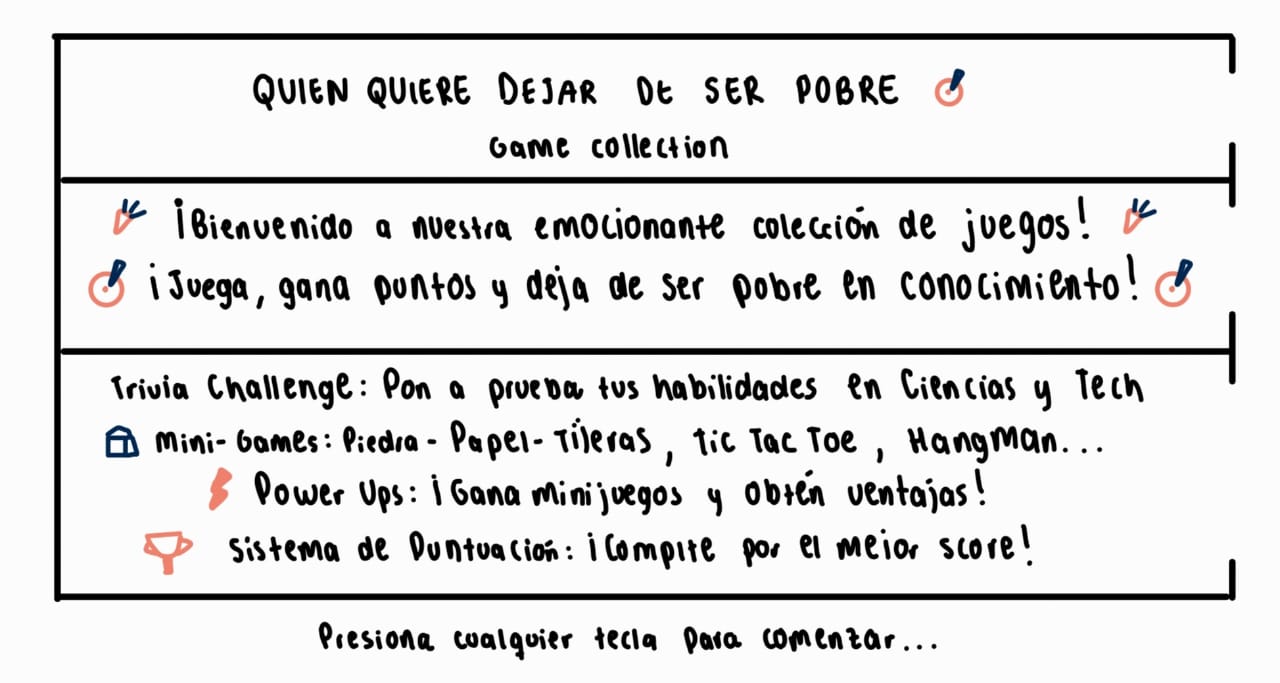 QUIEN QUIERE DEJAR DE SER POBRE
Game collection
¡Bienvenido a nuestra emocionante colección de juegos!
¡Juega, gana puntos y deja de ser pobre en conocimiento!
Trivia Challenge: Pon a prueba tus habilidades en Ciencias y Tech
Mini-Games: Piedra-Papel-Tijeras, Tic Tac Toe, Hangman...
Power Ups: ¡Gana minijuegos y obtén ventajas!
Sistema de Puntuación: ¡Compite por el mejor score!
Presiona cualquier tecla para comenzar...